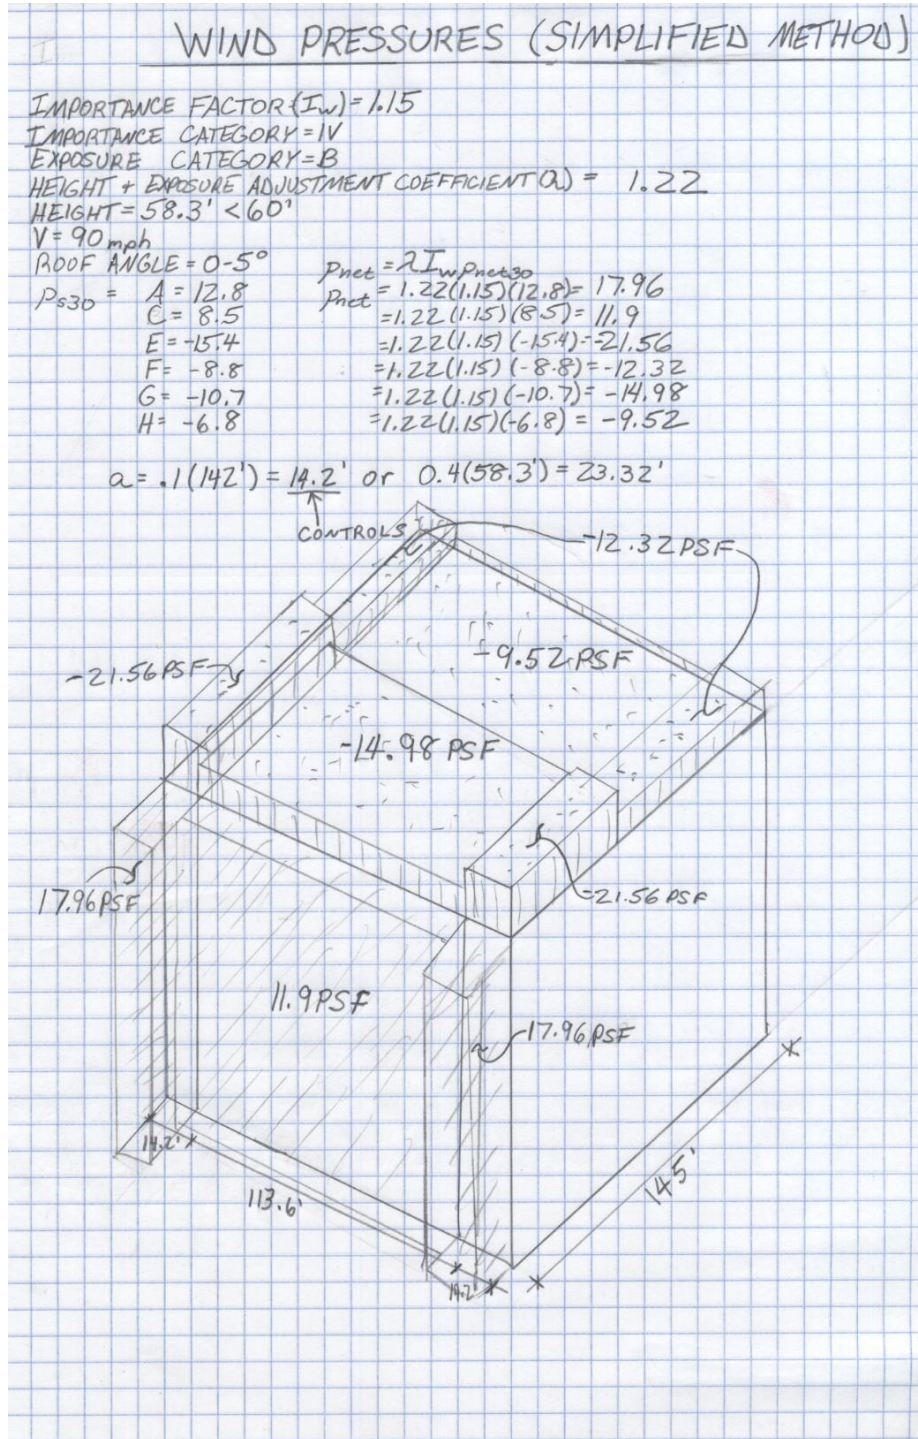 WIND PRESSURES (SIMPLIFIED METHOD)
IMPORTANCE FACTOR (Iw) = 1.15
IMPORTANCE CATEGORY = IV
EXPOSURE CATEGORY = B
HEIGHT + EXPOSURE ADJUSTMENT COEFFICIENT (λ) = 1.22
HEIGHT = 58.3' < 60'
V = 90 mph
ROOF ANGLE = 0-5° Pnet = λIwPnet30
Ps30 = A = 12.8 Pnet = 1.22(1.15)(12.8) = 17.96
C = 8.5 =1.22(1.15)(8.5) = 11.9
E = -15.4 =1.22(1.15)(-15.4) = -21.56
F = -8.8 =1.22(1.15)(-8.8) = -12.32
G = -10.7 =1.22(1.15)(-10.7) = -14.98
H = -6.8 =1.22(1.15)(-6.8) = -9.52
a = .1(142') = 14.2' or 0.4(58.3') = 23.32'
CONTROLS
-12.32 PSF
-9.52 PSF
-21.56 PSF
-14.98 PSF
17.96 PSF
-21.56 PSF
11.9 PSF
17.96 PSF
14.2'
113.6'
14.2'
145'